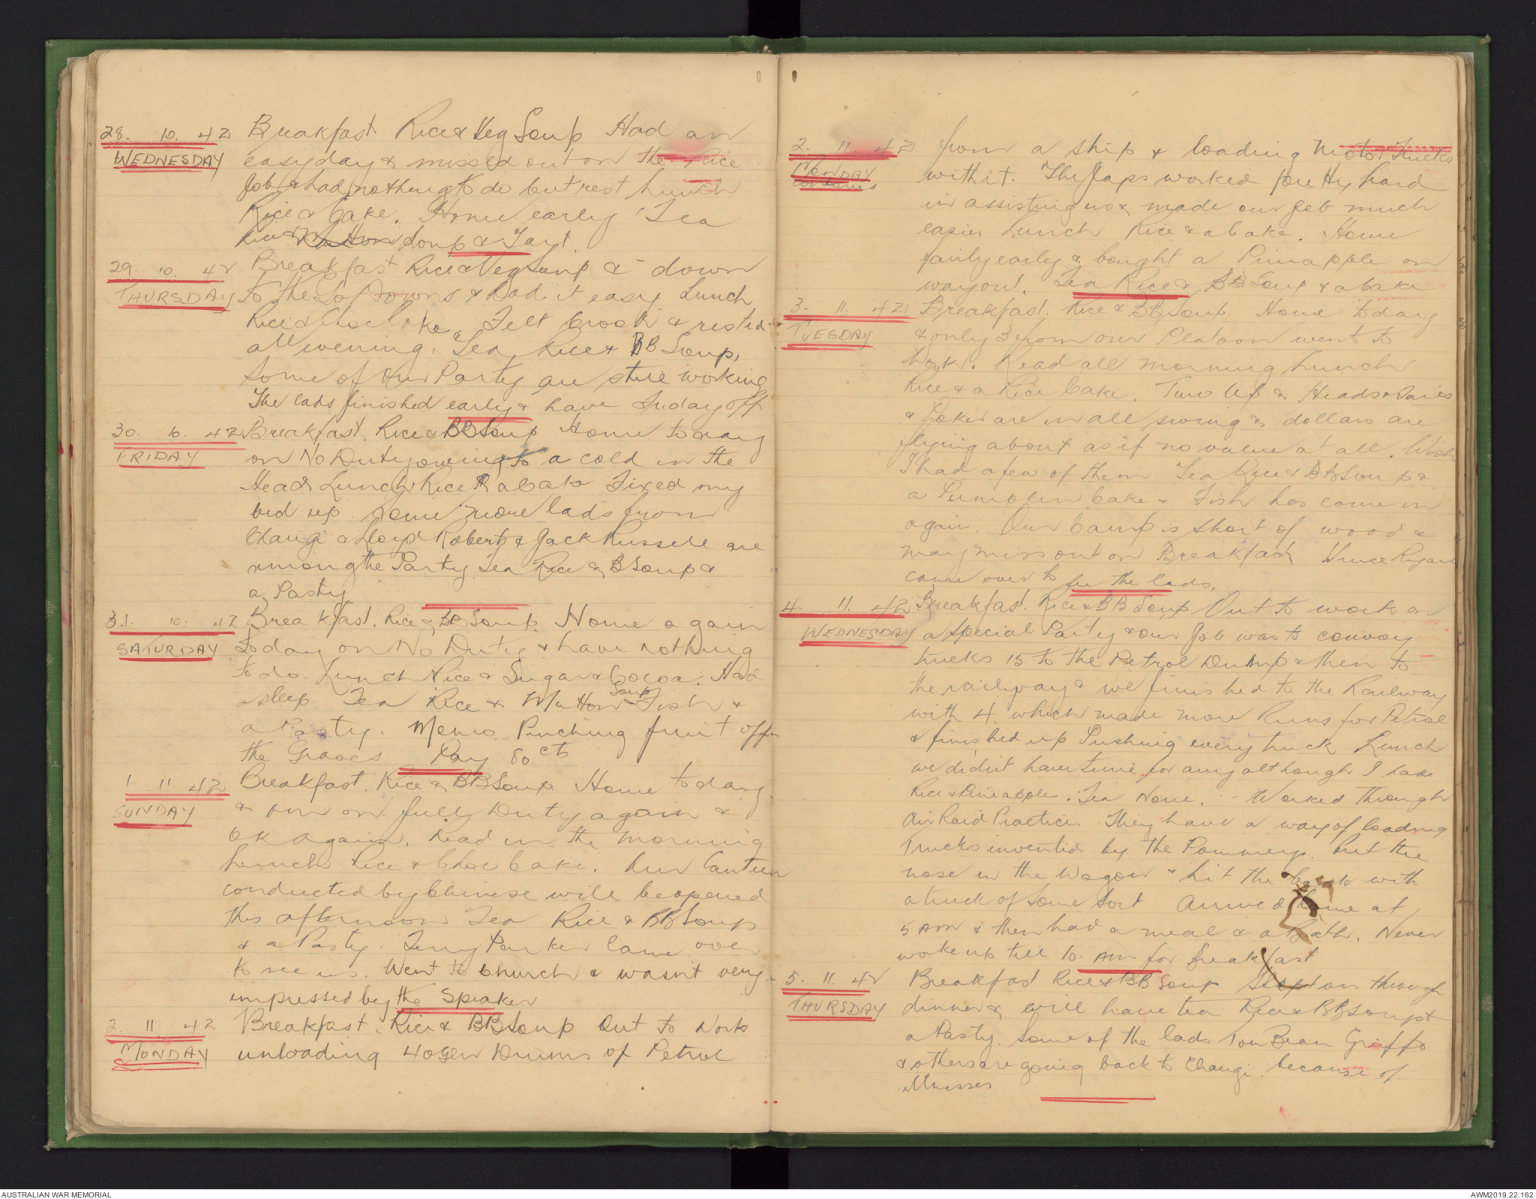 28. 10. 42 Breakfast Rice & Veg Soup Had an
WEDNESDAY easy day & missed out on the Rice
job & had nothing to do but rest Lunch
Rice & Cake. Home early Tea
Rice & Mutton Soup & Tart.
29. 10. 42 Breakfast Rice & Veg Soup & down
THURSDAY to the Godowns & had it easy Lunch
Rice & Choc Cake. Felt crook & rested
all evening. Tea Rice & BB Soup,
Some of our Party are still working
The lads finished early & have Friday off
30. 10. 42 Breakfast. Rice & BB Soup Home today
FRIDAY on No Duty owing to a cold in the
Head Lunch Rice & a Cake Fixed my
bed up. Some more lads from
Changi & Lloyd Roberts & Jack Russell are
among the Party Tea Rice & B Soup &
a Pasty
31. 10. 42 Breakfast. Rice & BB Soup Home again
SATURDAY today on No Duty & have nothing
to do. Lunch Rice & Sugar & Cocoa. Had
a sleep. Tea Rice & Mutton Soup Fish &
a Pasty. Memo. Pinching fruit off
the Graves Pay 80 cts
1. 11. 42 Breakfast. Rice & BB Soup Home today
SUNDAY & am on full Duty again &
OK again. Read in the morning
Lunch Rice & Choc Cake. Our Canteen
conducted by Chinese will be opened
this afternoon Tea Rice & BB Soup
& a Pasty. Terry Parker came over
to see us. Went to Church & wasn't very
impressed by the Speaker
2. 11. 42 Breakfast. Rice & BB Soup Out to Work
MONDAY unloading 40 Gln Drums of Petrol
2. 11. 42 from a ship & loading Motor Trucks
MONDAY continued with it. The Japs worked pretty hard
in assisting us & made our job much
easier Lunch Rice & a Cake. Home
fairly early & bought a Pineapple on
way out. Tea Rice & BB Soup & a Cake
3. 11. 42 Breakfast. Rice & BB Soup. Home today
TUESDAY & only 3 from our Platoon went to
work. Read all morning Lunch
Rice & a Rice Cake. Two Up & Heads & Tails
& Poker are in all swing & dollars are
flying about as if no value at all. Wish
I had a few of them Tea Rice & BB Soup &
a Pumpkin Cake & Fish has come in
again. Our Camp is short of wood &
may miss out on Breakfast Vince Ryan
came over to see the lads.
4. 11. 42 Breakfast. Rice & BB Soup Out to work on
WEDNESDAY a Special Party & our job was to convoy
trucks 15 to the Petrol Dump & then to
the railway & we finished to the Railway
with 4. which made more Runs for Petrol
& finished up Pushing every truck Lunch
we didn't have time for any although I had
Rice & Pineapple. Tea None. Worked through
Air Raid Practice. They have a way of loading
Trucks invented by the Pommeys. Put the
nose in the Wagon & hit the with
a truck of some Sort Arrived home at
5 AM & then had a meal & a Bath. Never
woke up till 10. AM for breakfast
5. 11. 42 Breakfast Rice & BB Soup Slept on through
THURSDAY dinner & will have tea Rice & BB Soup &
a Pasty. Some of the lads Tom Bean Griffo
& others are going back to Changi because of
illnesses
AUSTRALIAN WAR MEMORIAL
AWM2019.22.162